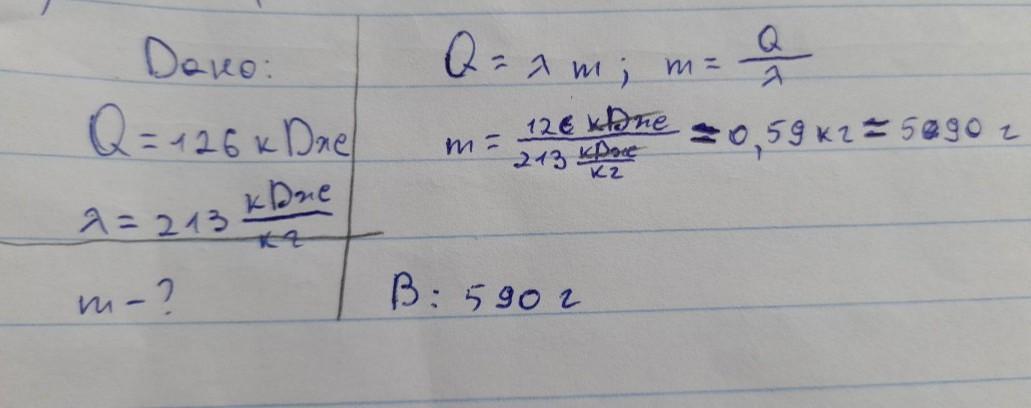 Дано:
Q = 126 кДже
λ = 213 кДже/кг
m - ?
Q = λ m ; m = Q/λ
m = 126 кДже / 213 кДже/кг = 0,59 кг = 590 г
В: 590 г